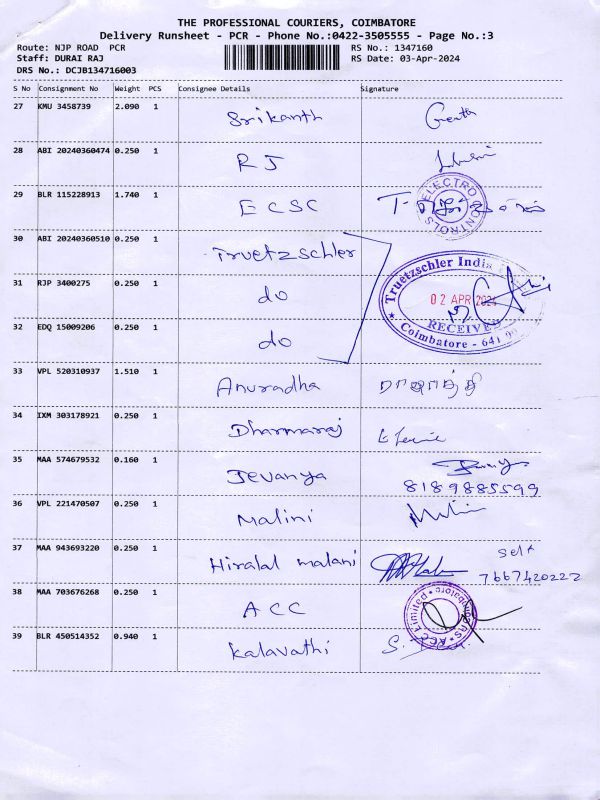 THE PROFESSIONAL COURIERS, COIMBATORE
Delivery Runsheet - PCR - Phone No.:0422-3505555 - Page No.:3
Route: NJP ROAD PCR
RS No.: 1347160
Staff: DURAI RAJ
RS Date: 03-Apr-2024
DRS No.: DCJB134716003
S No Consignment No Weight PCS Consignee Details Signature
27 KMU 3458739 2.090 1 Srikanth Geetha
28 ABI 20240360474 0.250 1 RJ
29 BLR 115228913 1.740 1 ECSC
ELECTRO CONTROLS
30 ABI 20240360510 0.250 1 Truetzschler
Truetzschler India
31 RJP 3400275 0.250 1 do
02 APR 2024
RECEIVED
32 EDQ 15009206 0.250 1 do
Coimbatore - 641
33 VPL 520310937 1.510 1 Anuradha
34 IXM 303178921 0.250 1 Dharmaraj
35 MAA 574679532 0.160 1 Jevanya
8189885599
36 VPL 221470507 0.250 1 Malini Malini
37 MAA 943693220 0.250 1 Hiralal malani
self
7667420222
38 MAA 703676268 0.250 1 ACC
ACC Limited
39 BLR 450514352 0.940 1 Kalavathi